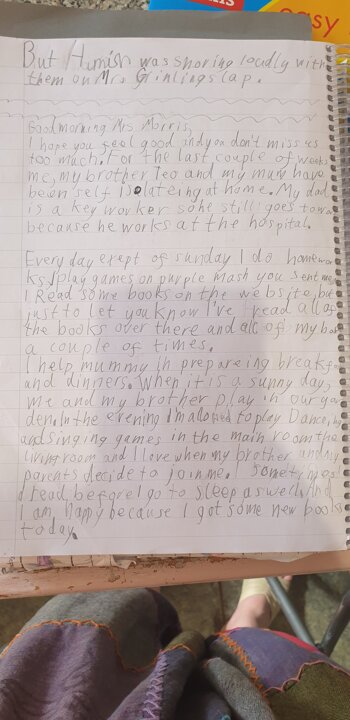 easy
But Hamish was snoring loudly with
them on Mrs Grinlings lap.
Good morning Mrs Morris,
I hope you feel good and you don't miss us
too much. For the last couple of weeks
me, my brother Teo and my mum have
been self isolateing at home. My dad
is a key worker so he still goes to
because he works at the hospital.
Every day exept of sunday I do homewor
ks, play games on purple mash you sent me.
I Read some books on the website, but
just to let you know I've read all of
the books over there and all of my
a couple of times.
I help mummy in prepareing
and dinners. When it is a sunny day,
me and my brother play in our gar
den. In the evening I'm allowed to play Dancing
and singing games in the main room the
living room and I love when my brother and my
parents decide to join me. Sometimes
I read before I go to sleep as well. And
I am happy because I got some new books
today.